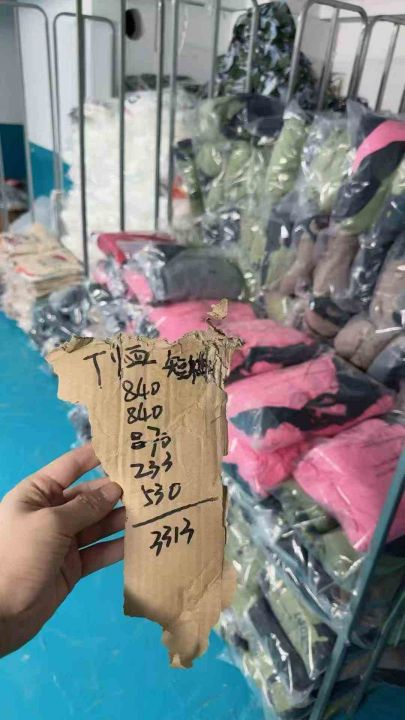 T恤 短袖
840
840
870
233
530
3313